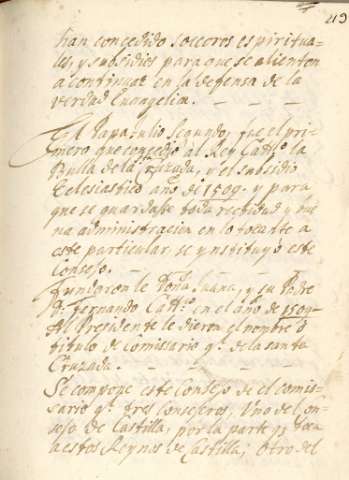 213
han concedido soccoros espiritua-
les, y subsidios para que se alienten
a continuar en la defensa de la
verdad Euangelica. - - -
El Papa Julio Segundo, fue el pri-
mero que concedio al Rey Cattco. la
Bulla de la Sta. Cruzada, y el subsidio
Eclesiastico año de 1509. y para
que se guardase toda rectitud y bue
na administracion en lo tocante a
este particular se ynstituyó este
Consejo.
Fundaronle Doña Juana, y su Padre
Dn. Fernando Cattco. en el año de 1509.
Al Presidente le dieron el nombre ó
titulo de comisario gl. de la santa
Cruzada. - - - -
Se compone este Consejo de el comis-
sario gl. tres consejeros, Uno del Con-
sejo de Castilla, por la parte q. toca
a estos Reynos de Castilla; Otro del